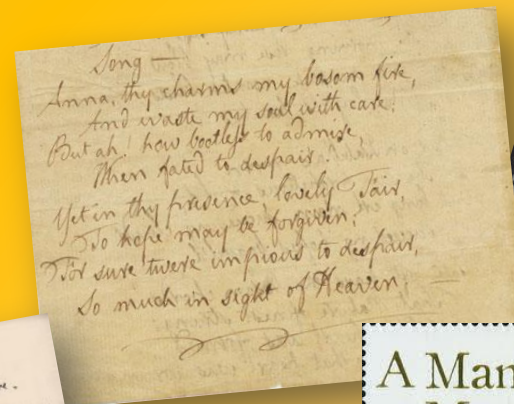 Song —
Anna, thy charms my bosom fire,
And waste my soul with care;
But ah! how bootless to admire,
When fated to despair!
Yet in thy presence, lovely Fair,
To hope may be forgiven;
For sure 'twere impious to despair,
So much in sight of Heaven. —
A Man